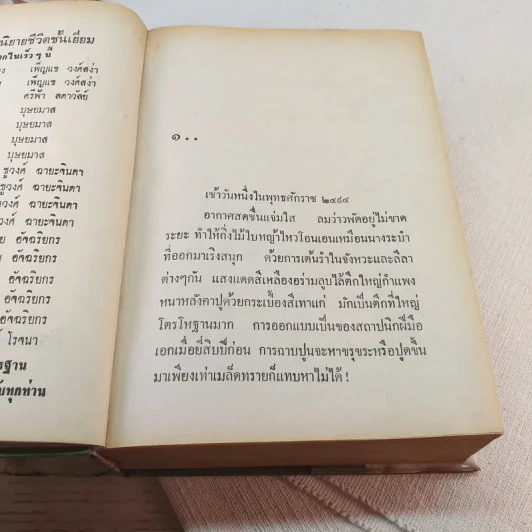 นิยายชีวิตชั้นเยี่ยม
เพ็ญแข วงศ์สง่า
เพ็ญแข วงศ์สง่า
ศรีฟ้า ลดาวัลย์
บุษยมาส
บุษยมาส
บุษยมาส
บุษยมาส
ชูวงศ์ ฉายะจินดา
ชูวงศ์ ฉายะจินดา
วงศ์ ฉายะจินดา
วงศ์ ฉายะจินดา
อัจฉริยกร
อัจฉริยกร
อัจฉริยกร
อัจฉริยกร
อัจฉริยกร
โรจนา
รฐาน
บทุกท่าน
๑..
เช้าวันหนึ่งในพุทธศักราช ๒๔๙๔
อากาศสดชื่นแจ่มใส ลมว่าวพัดอยู่ไม่ขาด
ระยะ ทำให้กิ่งไม้ใบหญ้าไหวโอนเอนเหมือนนางระบำ
ที่ออกมาเริงสนุก ด้วยการเต้นรำในจังหวะและลีลา
ต่างๆกัน แสงแดดสีเหลืองอร่ามลูบไล้ตึกใหญ่กำแพง
หนาหลังคาปูด้วยกระเบื้องสีเทาแก่ มักเป็นตึกที่ใหญ่
โตรโหฐานมาก การออกแบบเป็นของสถาปนิกฝีมือ
เอกเมื่อยี่สิบปีก่อน การฉาบปูนจะหาขรุขระหรือปูดขึ้น
มาเพียงเท่าเมล็ดทรายก็แทบหาไม่ได้!